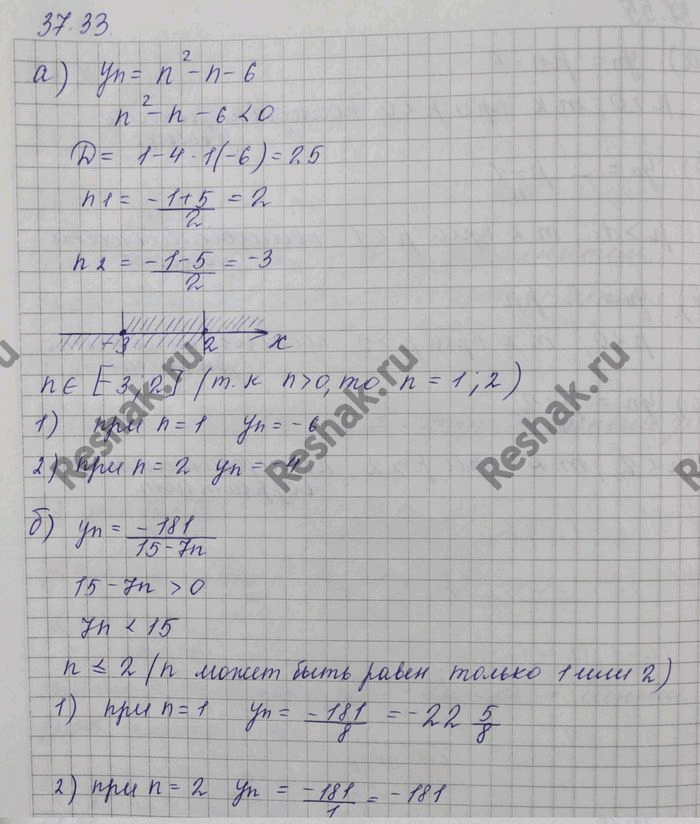 37.33.
а) yn = n² - n - 6
n² - n - 6 < 0
D = 1 - 4 · 1(-6) = 25
n1 = -1+5/2 = 2
n2 = -1-5/2 = -3
-3 2 x
n ∈ [-3; 2] (т.к n>0, то n = 1; 2)
1) при n = 1 yn = -6
2) при n = 2 yn = -4
б) yn = -181/15-7n
15 - 7n > 0
7n < 15
n ≤ 2 (n может быть равен только 1 или 2)
1) при n = 1 yn = -181/8 = -22 5/8
2) при n = 2 yn = -181/1 = -181
Reshak.ru
Reshak.ru
Reshak.ru